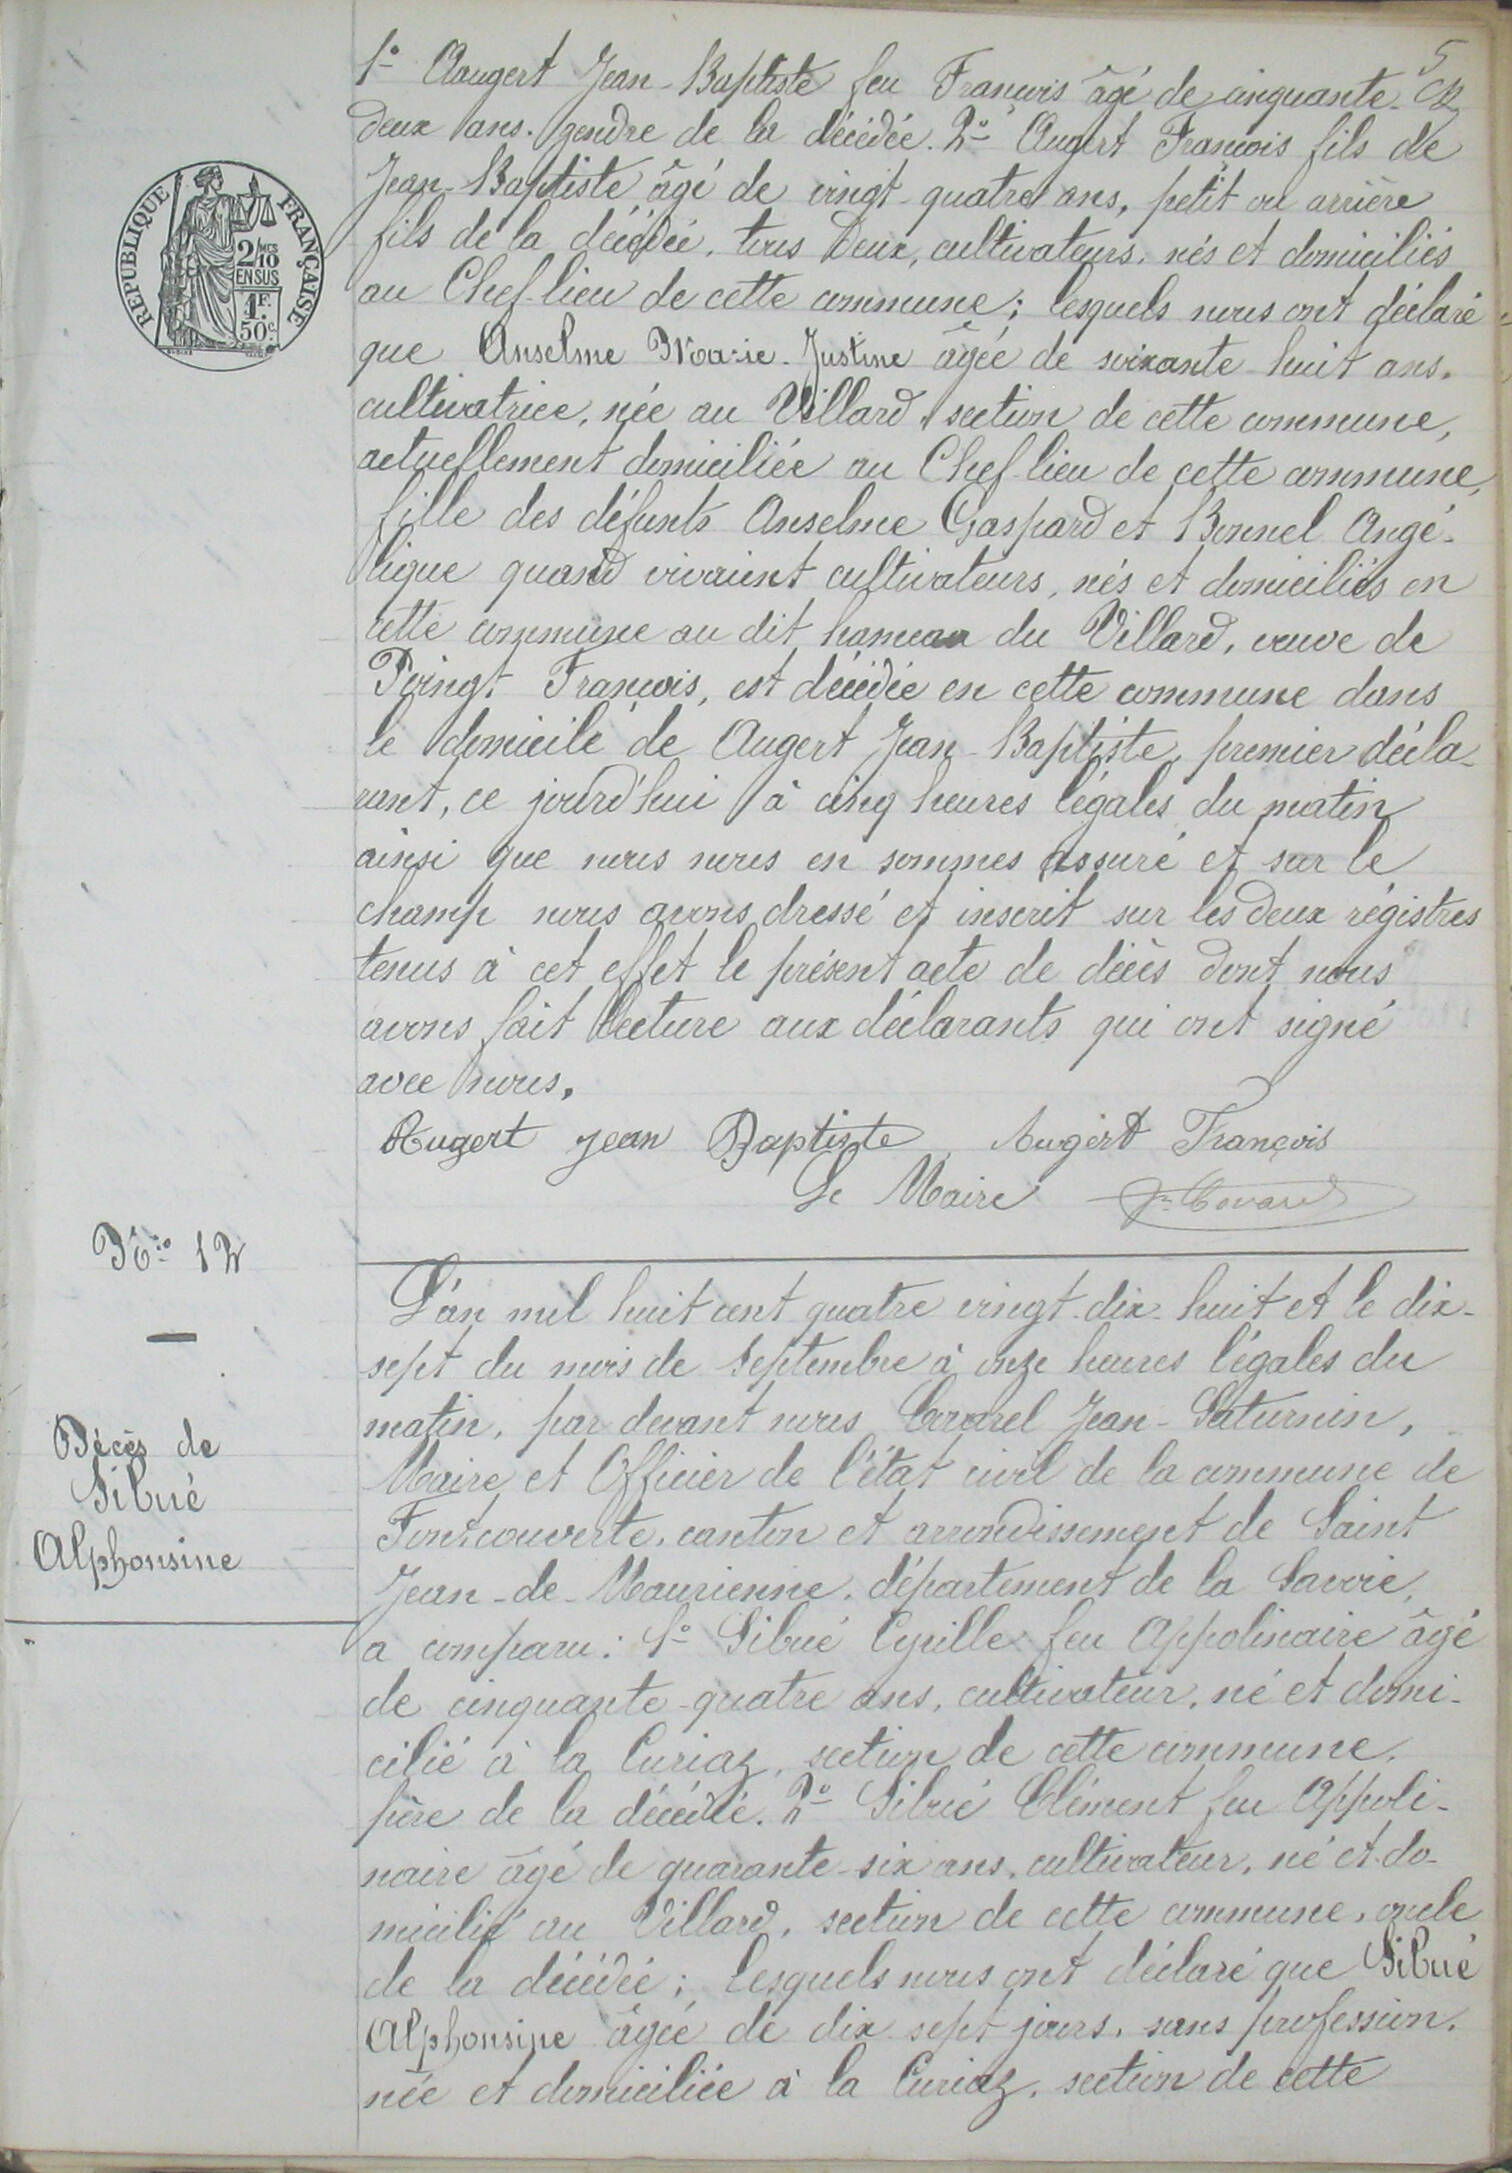 5
1º Aaugert Jean-Baptiste feu François âgé de cinquante-
deux ans. gendre de la décédée. 2º Augert François fils de
Jean-Baptiste âgé de vingt-quatre ans, petit ou arrière
fils de la décédée. tous deux, cultivateurs. nés et domiciliés
au Chef-lieu de cette commune; lesquels nous ont déclaré
que Anselme Marie-Justine âgée de soixante-huit ans.
cultivatrice, née au Villard, section de cette commune,
actuellement domiciliée au Chef-lieu de cette commune,
fille des défunts Anselme Gaspard et Bonnel Angé-
lique quand vivaient cultivateurs, nés et domiciliés en
cette commune au dit hameau du Villard, veuve de
Poingt François, est décédée en cette commune dans
le domicile de Augert Jean-Baptiste, premier décla-
rant, ce jourd'hui à cinq heures légales du matin
ainsi que nous nous en sommes assuré et sur le
champ nous avons dressé et inscrit sur les deux régistres
tenus à cet effet le présent acte de décès dont nous
avons fait lecture aux déclarants qui ont signé
avec nous.
Augert jean Baptiste Augert François
Le Maire
REPUBLIQUE FRANÇAISE
2 MES 10
EN SUS
1F.
50c.
Nº 12
Décès de
Sibué
Alphonsine
L'an mil huit cent quatre vingt-dix-huit et le dix-
sept du mois de Septembre à onze heures légales du
matin, par devant nous Covarel Jean-Saturnin,
Maire et Officier de l'état civil de la commune de
Fontcouverte, canton et arrondissement de Saint
Jean-de-Maurienne, département de la Savoie,
a comparu: 1º Sibué Cyrille feu Appolinaire âgé
de cinquante-quatre ans, cultivateur, né et domi-
cilié à la Curiaz, section de cette commune,
père de la décédée. 2º Sibué Clément feu Appoli-
naire âgé de quarante-six ans, cultivateur, né et do-
micilié au Villard, section de cette commune, oncle
de la décédée; lesquels nous ont déclaré que Sibué
Alphonsine âgée de dix sept jours, sans profession,
née et domiciliée à la Curiaz, section de cette